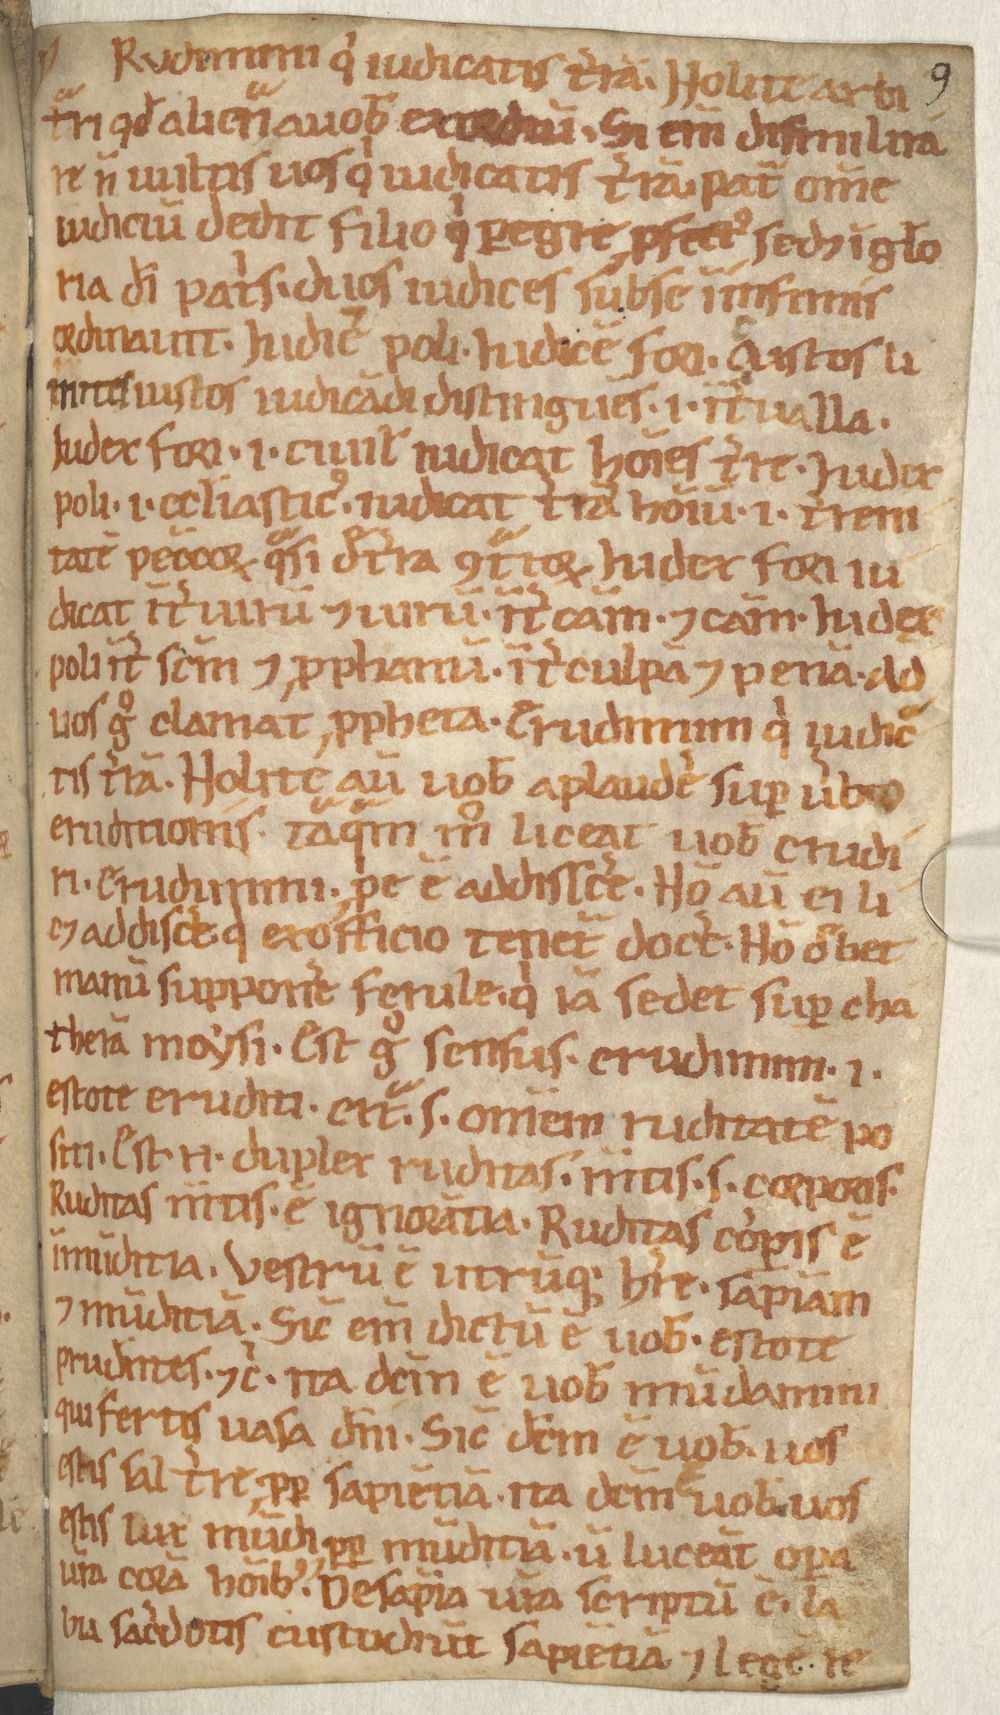 Rudimini q iudicatis t'rā. Nolite arbi 9
t̄ri qđ alienū a uob̄ exordiū. Si eni dissimula
re n̄ uultis uos q iudicatis t'rā. pat̄ om̄e
iudiciū dedit filio q p̄egre ꝓfect9 sedꝫ ī glo
ria dī pat's. duos iudices sub se
ordinauit. Iudicē poli. Iudicē fori. q istos li
mites iustos iudicādi distinguēs .i. int'ualla.
Iudex fori .i. ciuil' iudicat hoīes t're. Iudex
poli .i. eccl'iastic9. iudicat t'rā hoīu .i. t'reni
tatē pecc̄oꝝ q̄si
Iudex fori iu
dicat īt' uirū ⁊ uirū. īt' cām ⁊ cām. Iudex
poli īt' scm̄ ⁊ ꝓphanū. īt' culpā ⁊ penā. Ad
uos g° clamat ꝓpheta. Erudimini q iudica
tis t'rā. Nolite aū uob̄ aplaude' sup u'bo
eruditionis. tāq̄m n° liceat uob̄ erudi
ri. Erudimini. ꝓpe ē addisce'. Nō aū ei li
cꝫ addisce'. q ex officio tenet̄ doce'. Nō debet
manū suppone' ferule. q iā sedet sup cha
therā moysi. Est g° sensus. erudimini .i.
estote eruditi. ext̄ .s. om̄em ruditatē po
siti. Est n̄. duplex ruditas. m̄tis .s. corporis.
Ruditas m̄tis. ē ignorātia. Ruditas co'pis ē
īmūditia. Vestrū ē utrūq; h're. sapīam
⁊ mūditiā. Sic eni dictū ē uob̄. estote
prudētes. ⁊c'. ita dcm̄ ē uob̄ mūdamini
qui fertis uasa dn̄i. Sic dcm̄ ē uob̄. uos
estis sal t're ꝓp sapiētiā. ita dcm̄ ē uob̄. uos
estis lux mūdi ꝓp mūditiā. ū luceāt opa
ur̄a corā hoīb9. De sapīa ur̄a scriptū ē. la
bia sac'dotis custodiūt sapiētiā ⁊ legē re